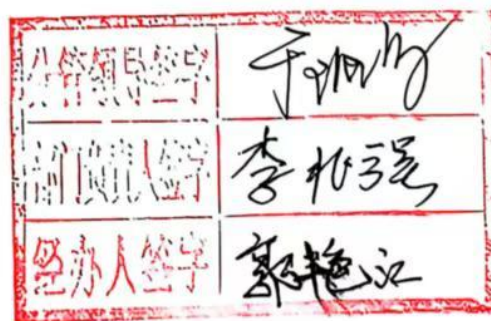 分管领导签字
部门负责人签字 李兆强
经办人签字 郭艳江